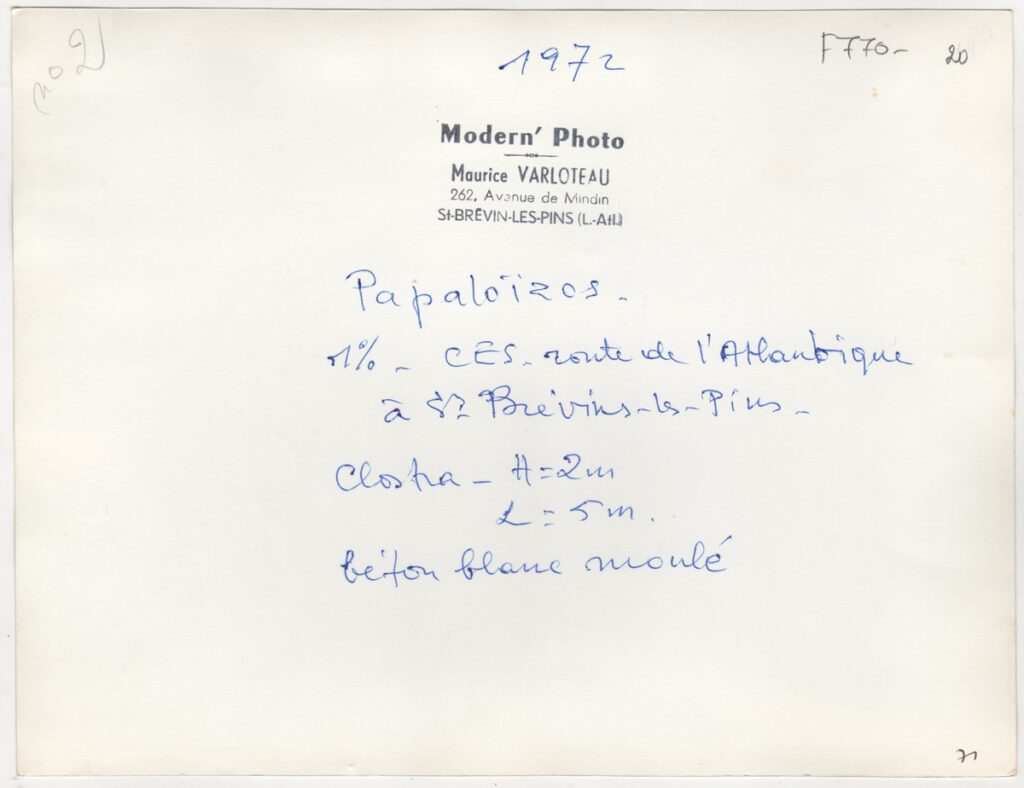 no 2
1972
F770-
20
Modern' Photo
Maurice VARLOTEAU
262, Avenue de Mindin
St-BRÉVIN-LES-PINS (L.-Atl.)
Papaloïzos.
1% - CES. route de l'Atlantique
à St Brévins-les-Pins -
Clostra - H = 2m
L = 5m.
béton blanc moulé
71